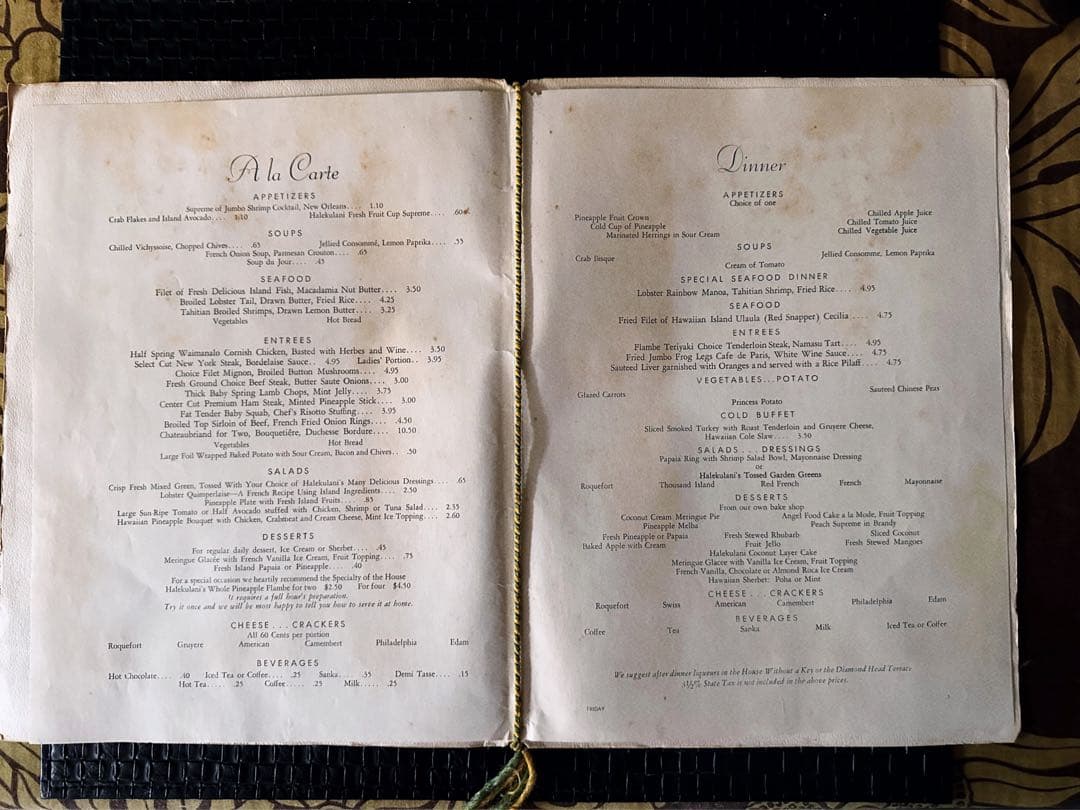 A la Carte
APPETIZERS
Supreme of Jumbo Shrimp Cocktail, New Orleans.... 1.10
Crab Flakes and Island Avocado.... 1.10 Halekulani Fresh Fruit Cup Supreme.... .60
SOUPS
Chilled Vichyssoise, Chopped Chives.... .65 Jellied Consommé, Lemon Paprika.... .55
French Onion Soup, Parmesan Crouton.... .65
Soup du Jour.... .45
SEAFOOD
Filet of Fresh Delicious Island Fish, Macadamia Nut Butter.... 3.50
Broiled Lobster Tail, Drawn Butter, Fried Rice.... 4.25
Tahitian Broiled Shrimps, Drawn Lemon Butter.... 3.25
Vegetables Hot Bread
ENTREES
Half Spring Waimanalo Cornish Chicken, Basted with Herbes and Wine.... 3.50
Select Cut New York Steak, Bordelaise Sauce.. 4.95 Ladies' Portion.. 3.95
Choice Filet Mignon, Broiled Button Mushrooms.... 4.95
Fresh Ground Choice Beef Steak, Butter Saute Onions.... 3.00
Thick Baby Spring Lamb Chops, Mint Jelly.... 3.75
Center Cut Premium Ham Steak, Minted Pineapple Stick.... 3.00
Fat Tender Baby Squab, Chef's Risotto Stuffing.... 3.95
Broiled Top Sirloin of Beef, French Fried Onion Rings.... .4.50
Chateaubriand for Two, Bouquetiére, Duchesse Bordure.... 10.50
Vegetables Hot Bread
Large Foil Wrapped Baked Potato with Sour Cream, Bacon and Chives.. .50
SALADS
Crisp Fresh Mixed Green, Tossed With Your Choice of Halekulani's Many Delicious Dressings.... .65
Lobster Quimperlaise—A French Recipe Using Island Ingredients.... 2.50
Pineapple Plate with Fresh Island Fruits.... .85
Large Sun-Ripe Tomato or Half Avocado stuffed with Chicken, Shrimp or Tuna Salad.... 2.35
Hawaiian Pineapple Bouquet with Chicken, Crabmeat and Cream Cheese, Mint Ice Topping.... 2.60
DESSERTS
For regular daily dessert, Ice Cream or Sherbet.... .45
Meringue Glacée with French Vanilla Ice Cream, Fruit Topping.... .75
Fresh Island Papaia or Pineapple.... .40
For a special occasion we heartily recommend the Specialty of the House
Halekulani's Whole Pineapple Flambe for two $2.50 For four $4.50
It requires a full hour's preparation.
Try it once and we will be most happy to tell you how to serve it at home.
CHEESE...CRACKERS
All 60 Cents per portion
Roquefort Gruyere American Camembert Philadelphia Edam
BEVERAGES
Hot Chocolate.... .40 Iced Tea or Coffee.... .25 Sanka.... .35 Demi Tasse.... .15
Hot Tea.... .25 Coffee.... .25 Milk.... .25
Dinner
APPETIZERS
Choice of one
Pineapple Fruit Crown Chilled Apple Juice
Cold Cup of Pineapple Chilled Tomato Juice
Marinated Herrings in Sour Cream Chilled Vegetable Juice
SOUPS
Crab Bisque Cream of Tomato Jellied Consommé, Lemon Paprika
SPECIAL SEAFOOD DINNER
Lobster Rainbow Manoa, Tahitian Shrimp, Fried Rice.... 4.95
SEAFOOD
Fried Filet of Hawaiian Island Ulaula (Red Snapper) Cecilia.... 4.75
ENTREES
Flambe Teriyaki Choice Tenderloin Steak, Namasu Tart.... 4.95
Fried Jumbo Frog Legs Cafe de Paris, White Wine Sauce.... 4.75
Sauteed Liver garnished with Oranges and served with a Rice Pilaff.... 4.75
VEGETABLES...POTATO
Glazed Carrots Princess Potato Sauteed Chinese Peas
COLD BUFFET
Sliced Smoked Turkey with Roast Tenderloin and Gruyere Cheese,
Hawaiian Cole Slaw.... 3.50
SALADS...DRESSINGS
Papaia Ring with Shrimp Salad Bowl, Mayonnaise Dressing
or
Halekulani's Tossed Garden Greens
Roquefort Thousand Island Red French French Mayonnaise
DESSERTS
From our own bake shop
Coconut Cream Meringue Pie Angel Food Cake a la Mode, Fruit Topping
Pineapple Melba Peach Supreme in Brandy
Fresh Pineapple or Papaia Fresh Stewed Rhubarb Sliced Coconut
Baked Apple with Cream Fruit Jello Fresh Stewed Mangoes
Halekulani Coconut Layer Cake
Meringue Glacée with Vanilla Ice Cream, Fruit Topping
French Vanilla, Chocolate or Almond Roca Ice Cream
Hawaiian Sherbet: Poha or Mint
CHEESE...CRACKERS
Roquefort Swiss American Camembert Philadelphia Edam
BEVERAGES
Coffee Tea Sanka Milk Iced Tea or Coffee
We suggest after dinner liqueurs in the House Without a Key or the Diamond Head Terrace
3½% State Tax is not included in the above prices.
FRIDAY